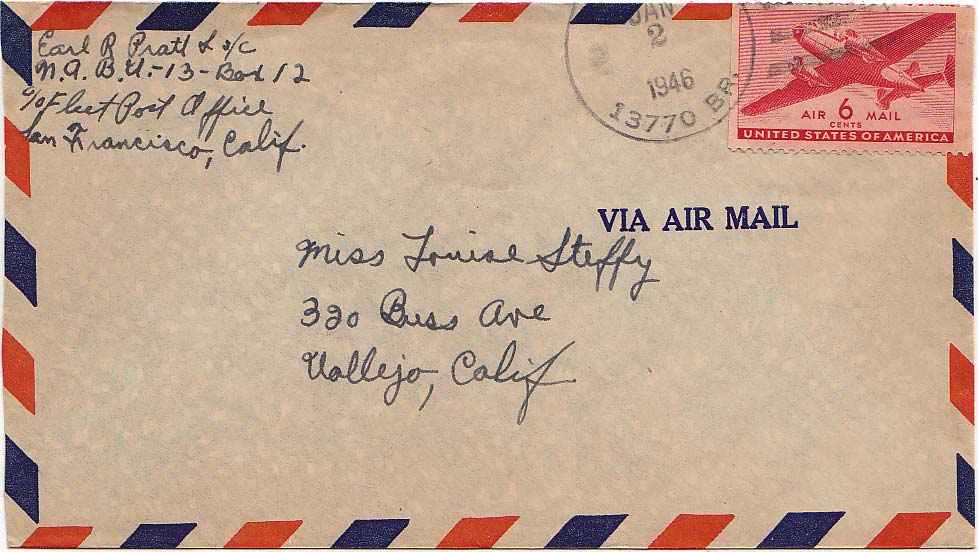 Earl R Pratt S s/c
N.A.B.U.-13-Box 12
c/o Fleet Post Office
San Francisco, Calif.
JAN
2
1946
13770 BR
AIR 6 MAIL
CENTS
UNITED STATES OF AMERICA
VIA AIR MAIL
Miss Louise Steffy
330 Buss Ave
Vallejo, Calif